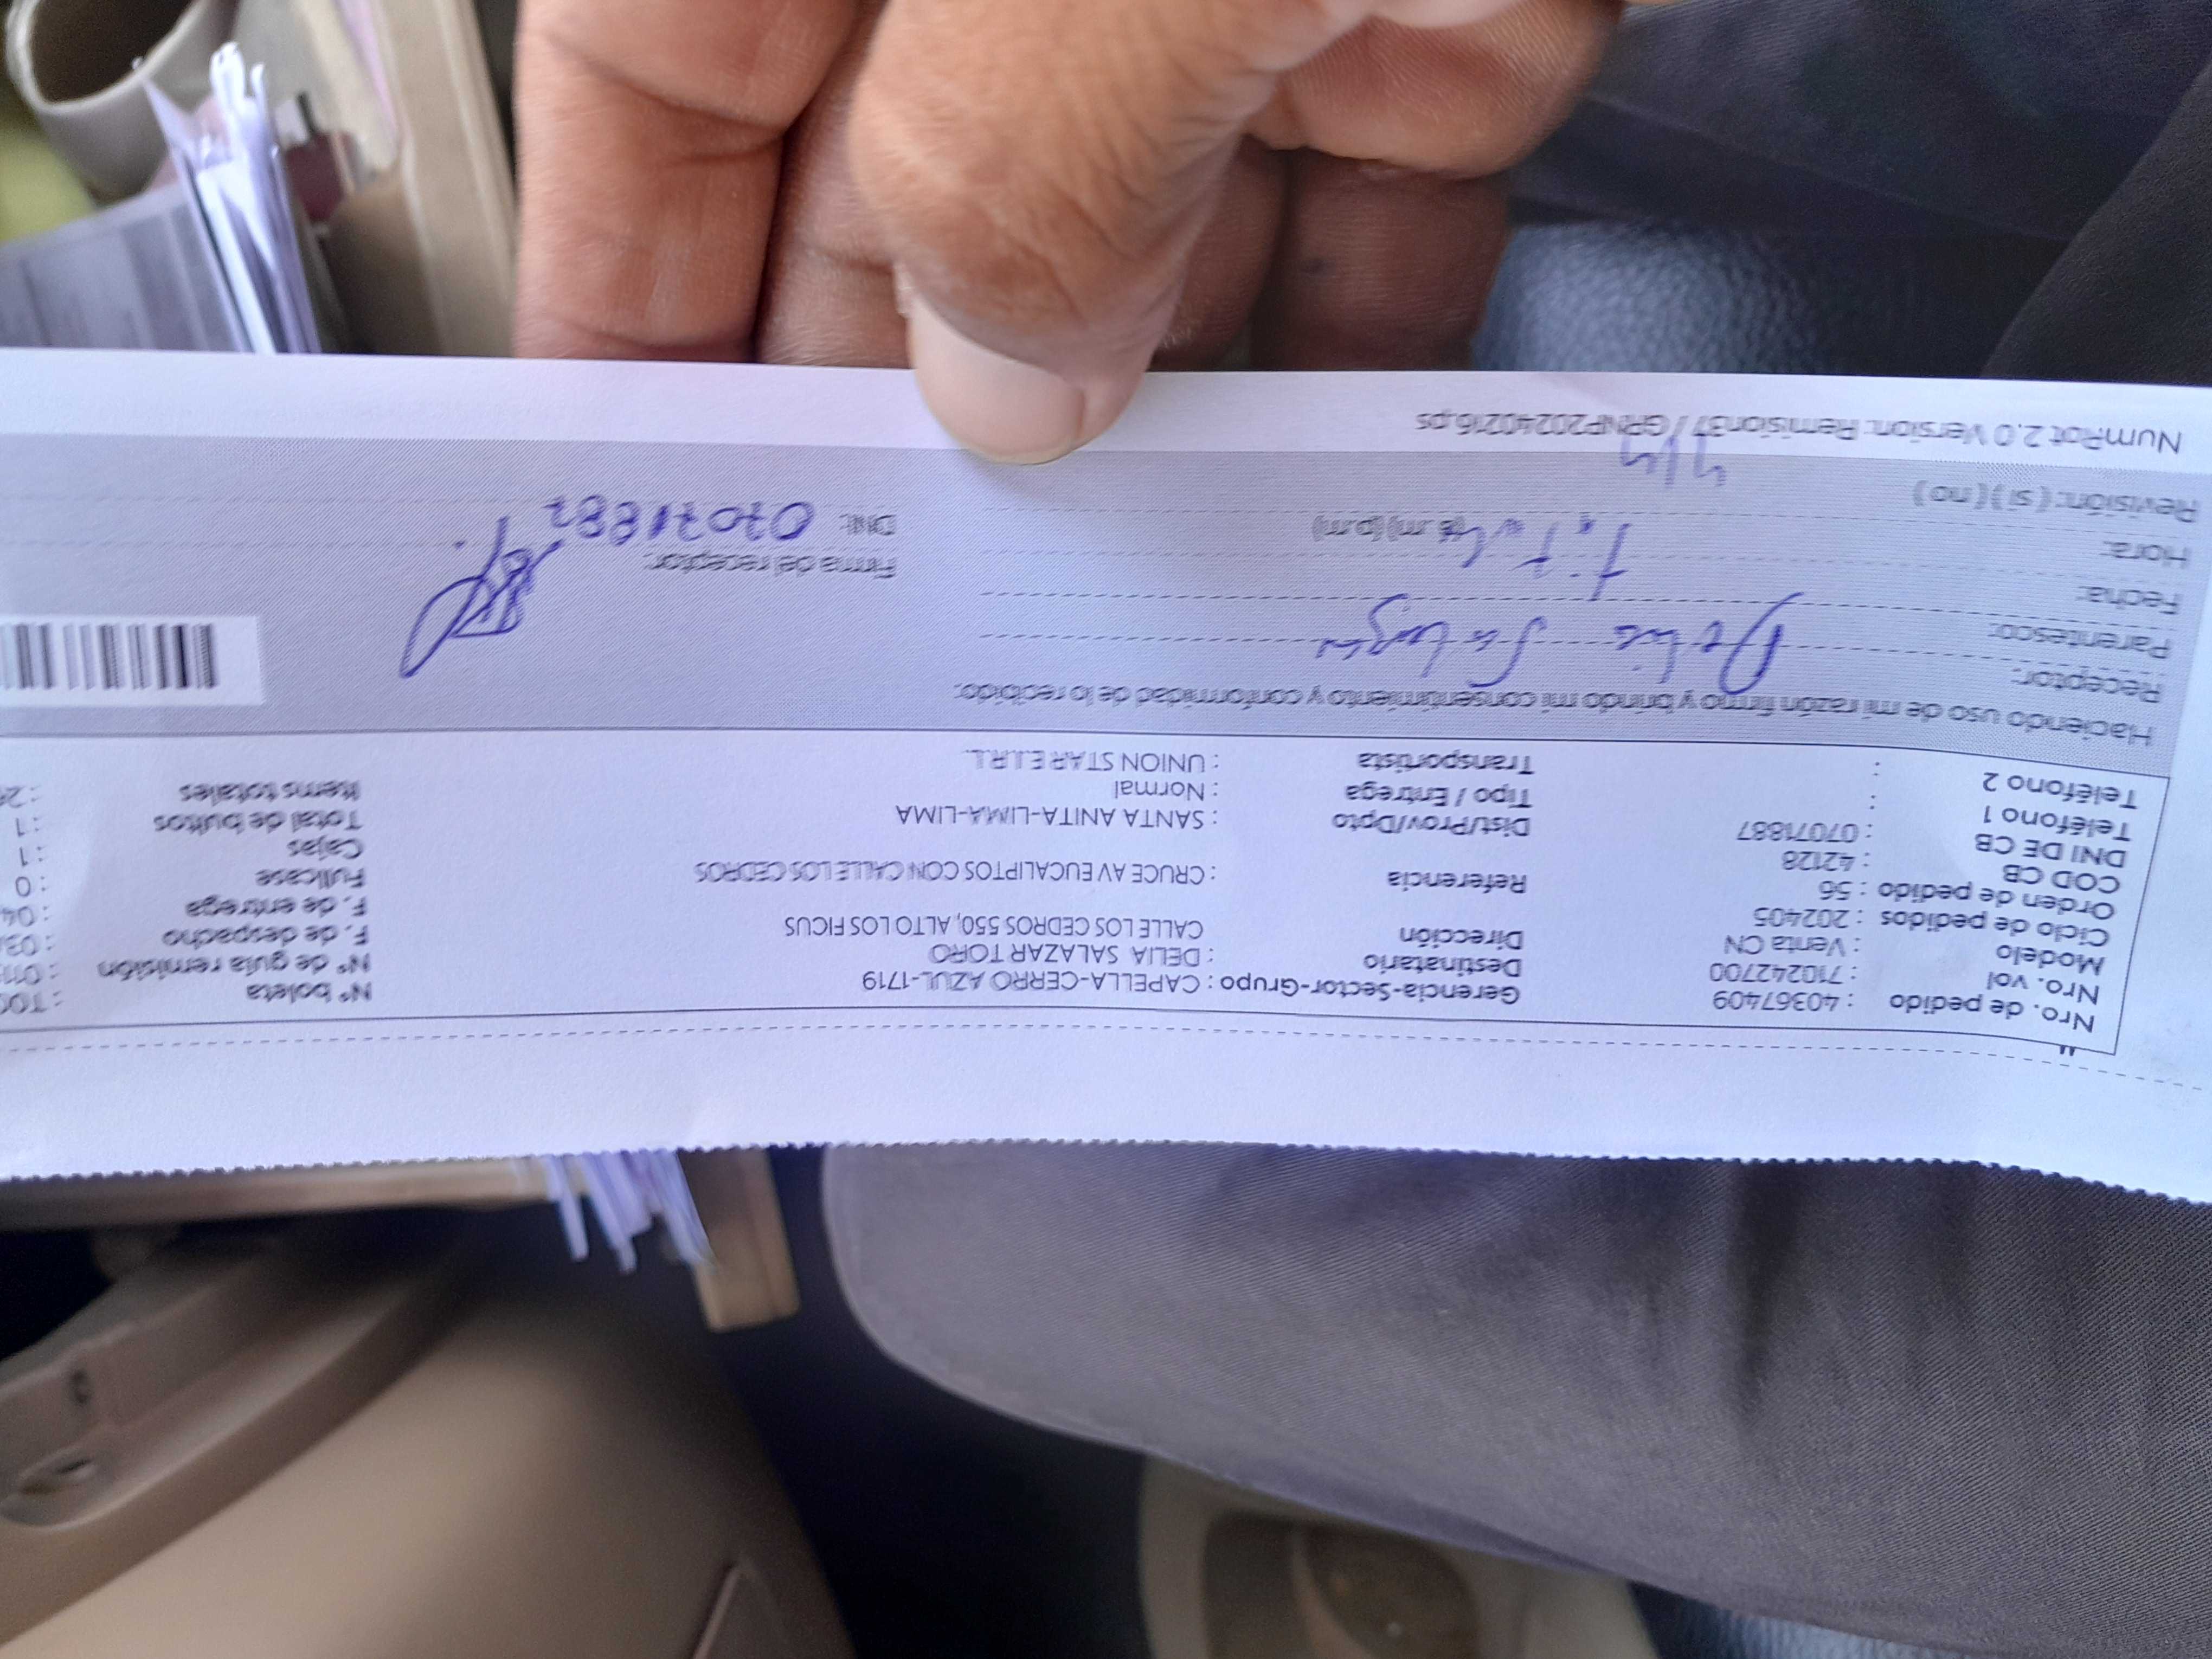 Nro. de pedido : 40367409
Nro. vol : 710242700
Modelo : Venta CN
Ciclo de pedidos : 202405
Orden de pedido : 56
COD CB : 42128
DNI DE CB : 07071887
Teléfono 1 :
Teléfono 2 :
Gerencia-Sector-Grupo : CAPELLA-CERRO AZUL-1719
Destinatario : DELIA SALAZAR TORO
Dirección CALLE LOS CEDROS 550, ALTO LOS FICUS
Referencia : CRUCE AV EUCALIPTOS CON CALLE LOS CEDROS
Dist/Prov/Dpto : SANTA ANITA-LIMA-LIMA
Tipo / Entrega : Normal
Transportista : UNION STAR E.I.R.L.
N° boleta
N° de guía remisión
F. de despacho : 03
F. de entrega : 04
Fullcase : 0
Cajas : 1
Total de bultos : 1
Items totales
Haciendo uso de mi razón firmo y brindo mi consentimiento y conformidad de lo recibido:
Receptor: Delia Salazar
Parentesco: Titular
Fecha:
Hora: (a.m) (p.m)
Revisión: ( si ) ( no )
Firma del receptor:
DNI: 07071887
NumRot 2.0 Version: Remision37 / GRNP20240216.ps